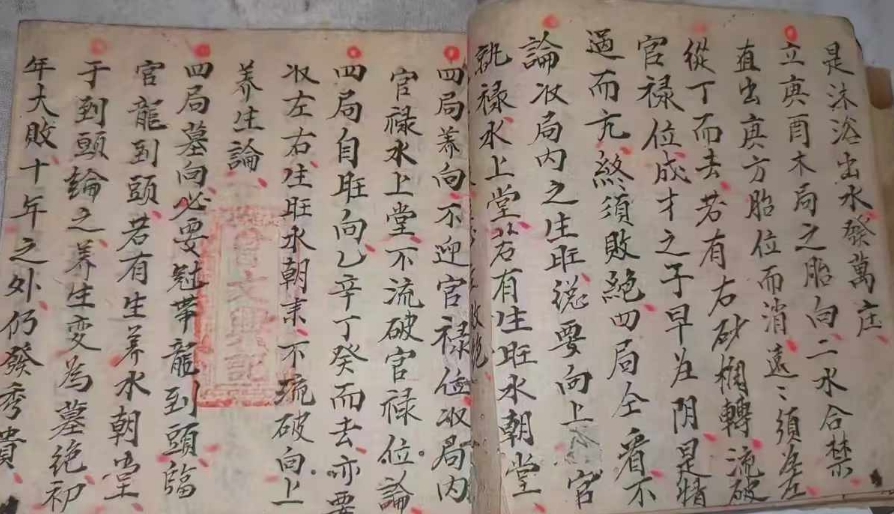 是沐浴出水發萬庄
立庚酉木局之胎向二水合襟
直出庚方胎位而消遠遠須左
從丁而去若有右砂欄轉流破
官禄位成才之子早為阴是精
過而亢終須敗絕四局仝看不
論收局内之生旺縂要向上官
就禄水上堂若有生旺水朝堂
四局养向不迎官禄位收局内
官禄水上堂不流破官禄位論
四局自旺向乙辛丁癸而去亦要
收左右生旺水朝來不流破向上
养生論
四局墓向必要冠帯龍到頭臨
官龍到頭若有生养水朝堂
于到頭論之养生变為墓绝初
年大敗十年之外仍發秀貴